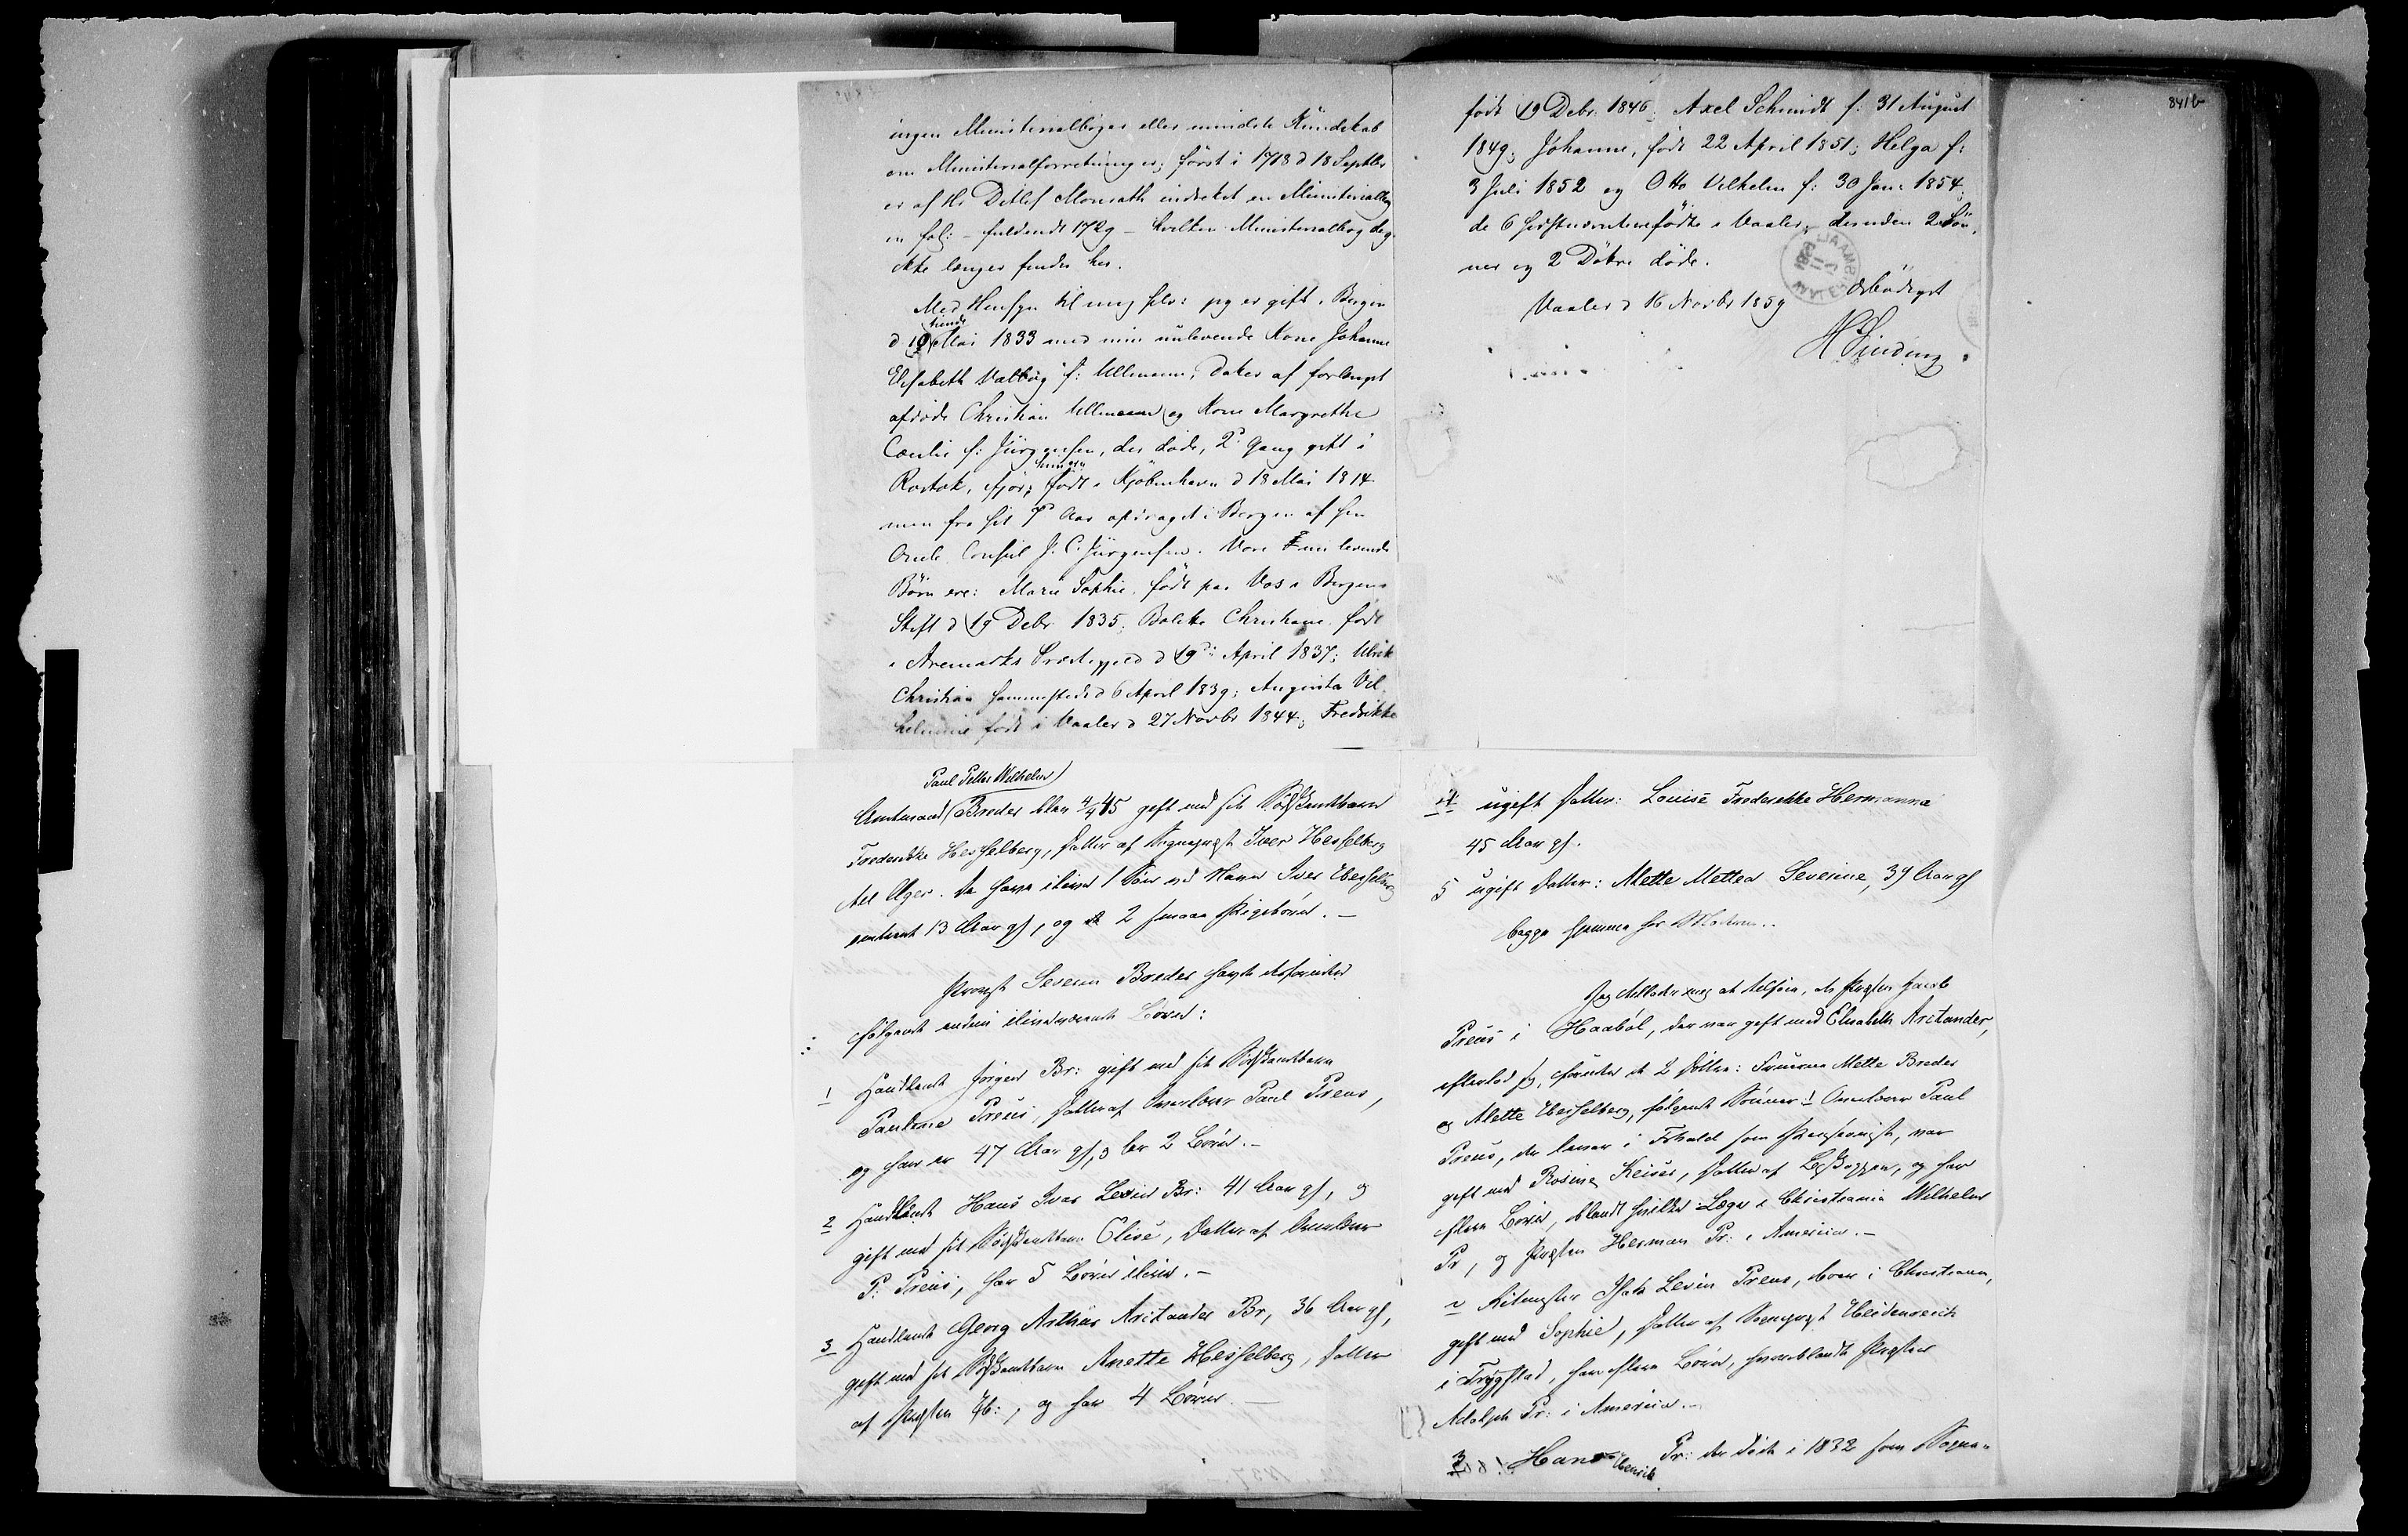 ingen Ministerialbøger eller mindste Kundskab
om Ministerialforretninger; først i 1713 d 18 Septbr
er af Hr Ditlef Monrath indrettet en Ministerialbog
in fol: – fuldendt 1729 – hvilken Ministerialbog dog
ikke længer findes her.
Med Hensyn til mig selv: jeg er gift i Bergen
d 10 Mai 1833 med min nulevende Kone Johanne
Elisabeth Valborg f: Ullmann, Datter af forlængst
afdøde Christian Ullmann og Kone Margrethe
Cæcilie f: Jürgensen, der døde, 2den Gang gift i
Rostok, ifjor; hun er født i Kjøbenhavn d 18 Mai 1814
men fra sit Aar opdraget i Bergen af sin
Onkel Consul J. C. Jürgensen. Vore nulevende
Børn ere: Marie Sophie, født paa Vos i Bergens
Stift d 19 Debr 1835; Bolette Christiane, født
i Aremarks Præstegjeld d 19de April 1837; Ulrik
Christian sammesteds d 6 April 1839; Augusta Vil
helmine født i Vaaler d 27 Novbr 1844; Fredrikke
født 19 Debr. 1846; Axel Schmidt f: 31 August
1849; Johanne, født 22 April 1851; Helga f:
3 Juli 1852 og Otto Vilhelm f: 30 Jan: 1854;
de 6 sidstnævnte fødte i Vaaler, desuden 2 Søn,
ner og 2 Døttre døde.
Vaaler d 16 Novbr 1859
Ærbødigst
H Sinding
841b
Paul Petter Wilhelm
Amtmand Breder blev 4/4 45 gift med sit Sødskendebarn
Frederikke Hesselberg, Datter af Sognepræst Iver Hesselberg
til Eger. De have ilive 1 Søn ved Navn Iver Hesselberg
omtrent 13 Aar gl, og 2 smaae Pigebørn. –
Provst Severin Breder havde desforuden
følgende endnu ilive værende Børn:
1 Handlende Jørgen Br: gift med sit Sødskendebarn
Pauline Preus, Datter af Overlærer Paul Preus,
og han er 47 Aar gl, har 2 Børn. –
2 Handlende Hans Ivar Levin Br: 41 Aar gl, og
gift med sit Sødskendebarn Elise, Datter af Overlærer
P: Preus, har 5 Børn ilive. –
3 Handlende Georg Arthur Arctander Br, 36 Aar gl,
gift med sit Sødskendebarn Anette Hesselberg, Datter
af Præsten Hb:, og har 4 Børn. –
4 ugift Datter: Louise Frederikke Hermanna
45 Aar gl.
5 ugift Datter: Alette Mettea Severine, 39 Aar gl
begge hjemme hos Moderen..
Jeg tillader mig at tilføie, at Præsten Jacob
Preus i Haabøl, der var gift med Elisabeth Arctander,
efterlod sig, foruden de 2 Døttre: Fruerne Mette Breder
og Alette Hesselberg, følgende Sønner: 1 Overlærer Paul
Preus, der lever i Frhald som Pensionist, var
gift med Rosine Keiser, Datter af Biskoppen, og har
flere Børn, blandt hvilke Læge i Christiania Wilhelm
Pr, og Præsten Herman Pr: i America. –
2 Ritmester Isak Levin Preus, boer i Christiania,
gift med Sophie, Datter af Sognepræst Heidenreich
i Trygstad, har flere Børn, hvoriblandt Præsten
Adolph Pr: i America. –
3 Hans Henrik Pr: der døde i 1832 som Sogne-